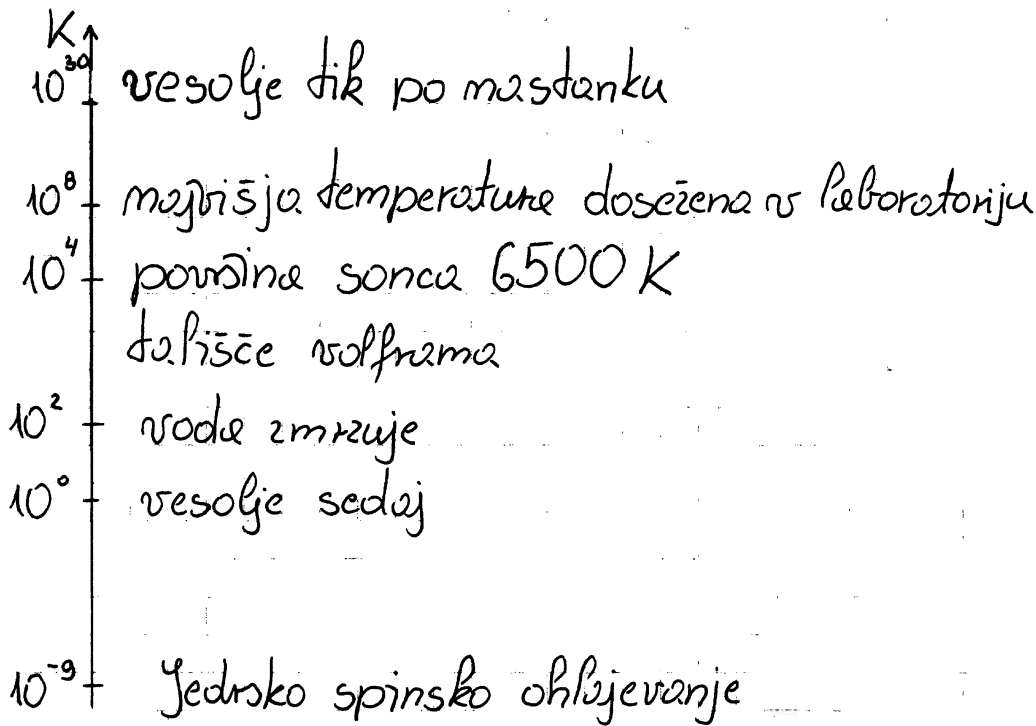 K
10³⁰ vesolje tik po nastanku
10⁸ najvišja temperatura dosežena v laboratoriju
10⁴ površina sonca 6500 K
tališče volframa
10² voda zmrzuje
10⁰ vesolje sedaj
10⁻⁹ Jedrsko spinsko ohlajevanje